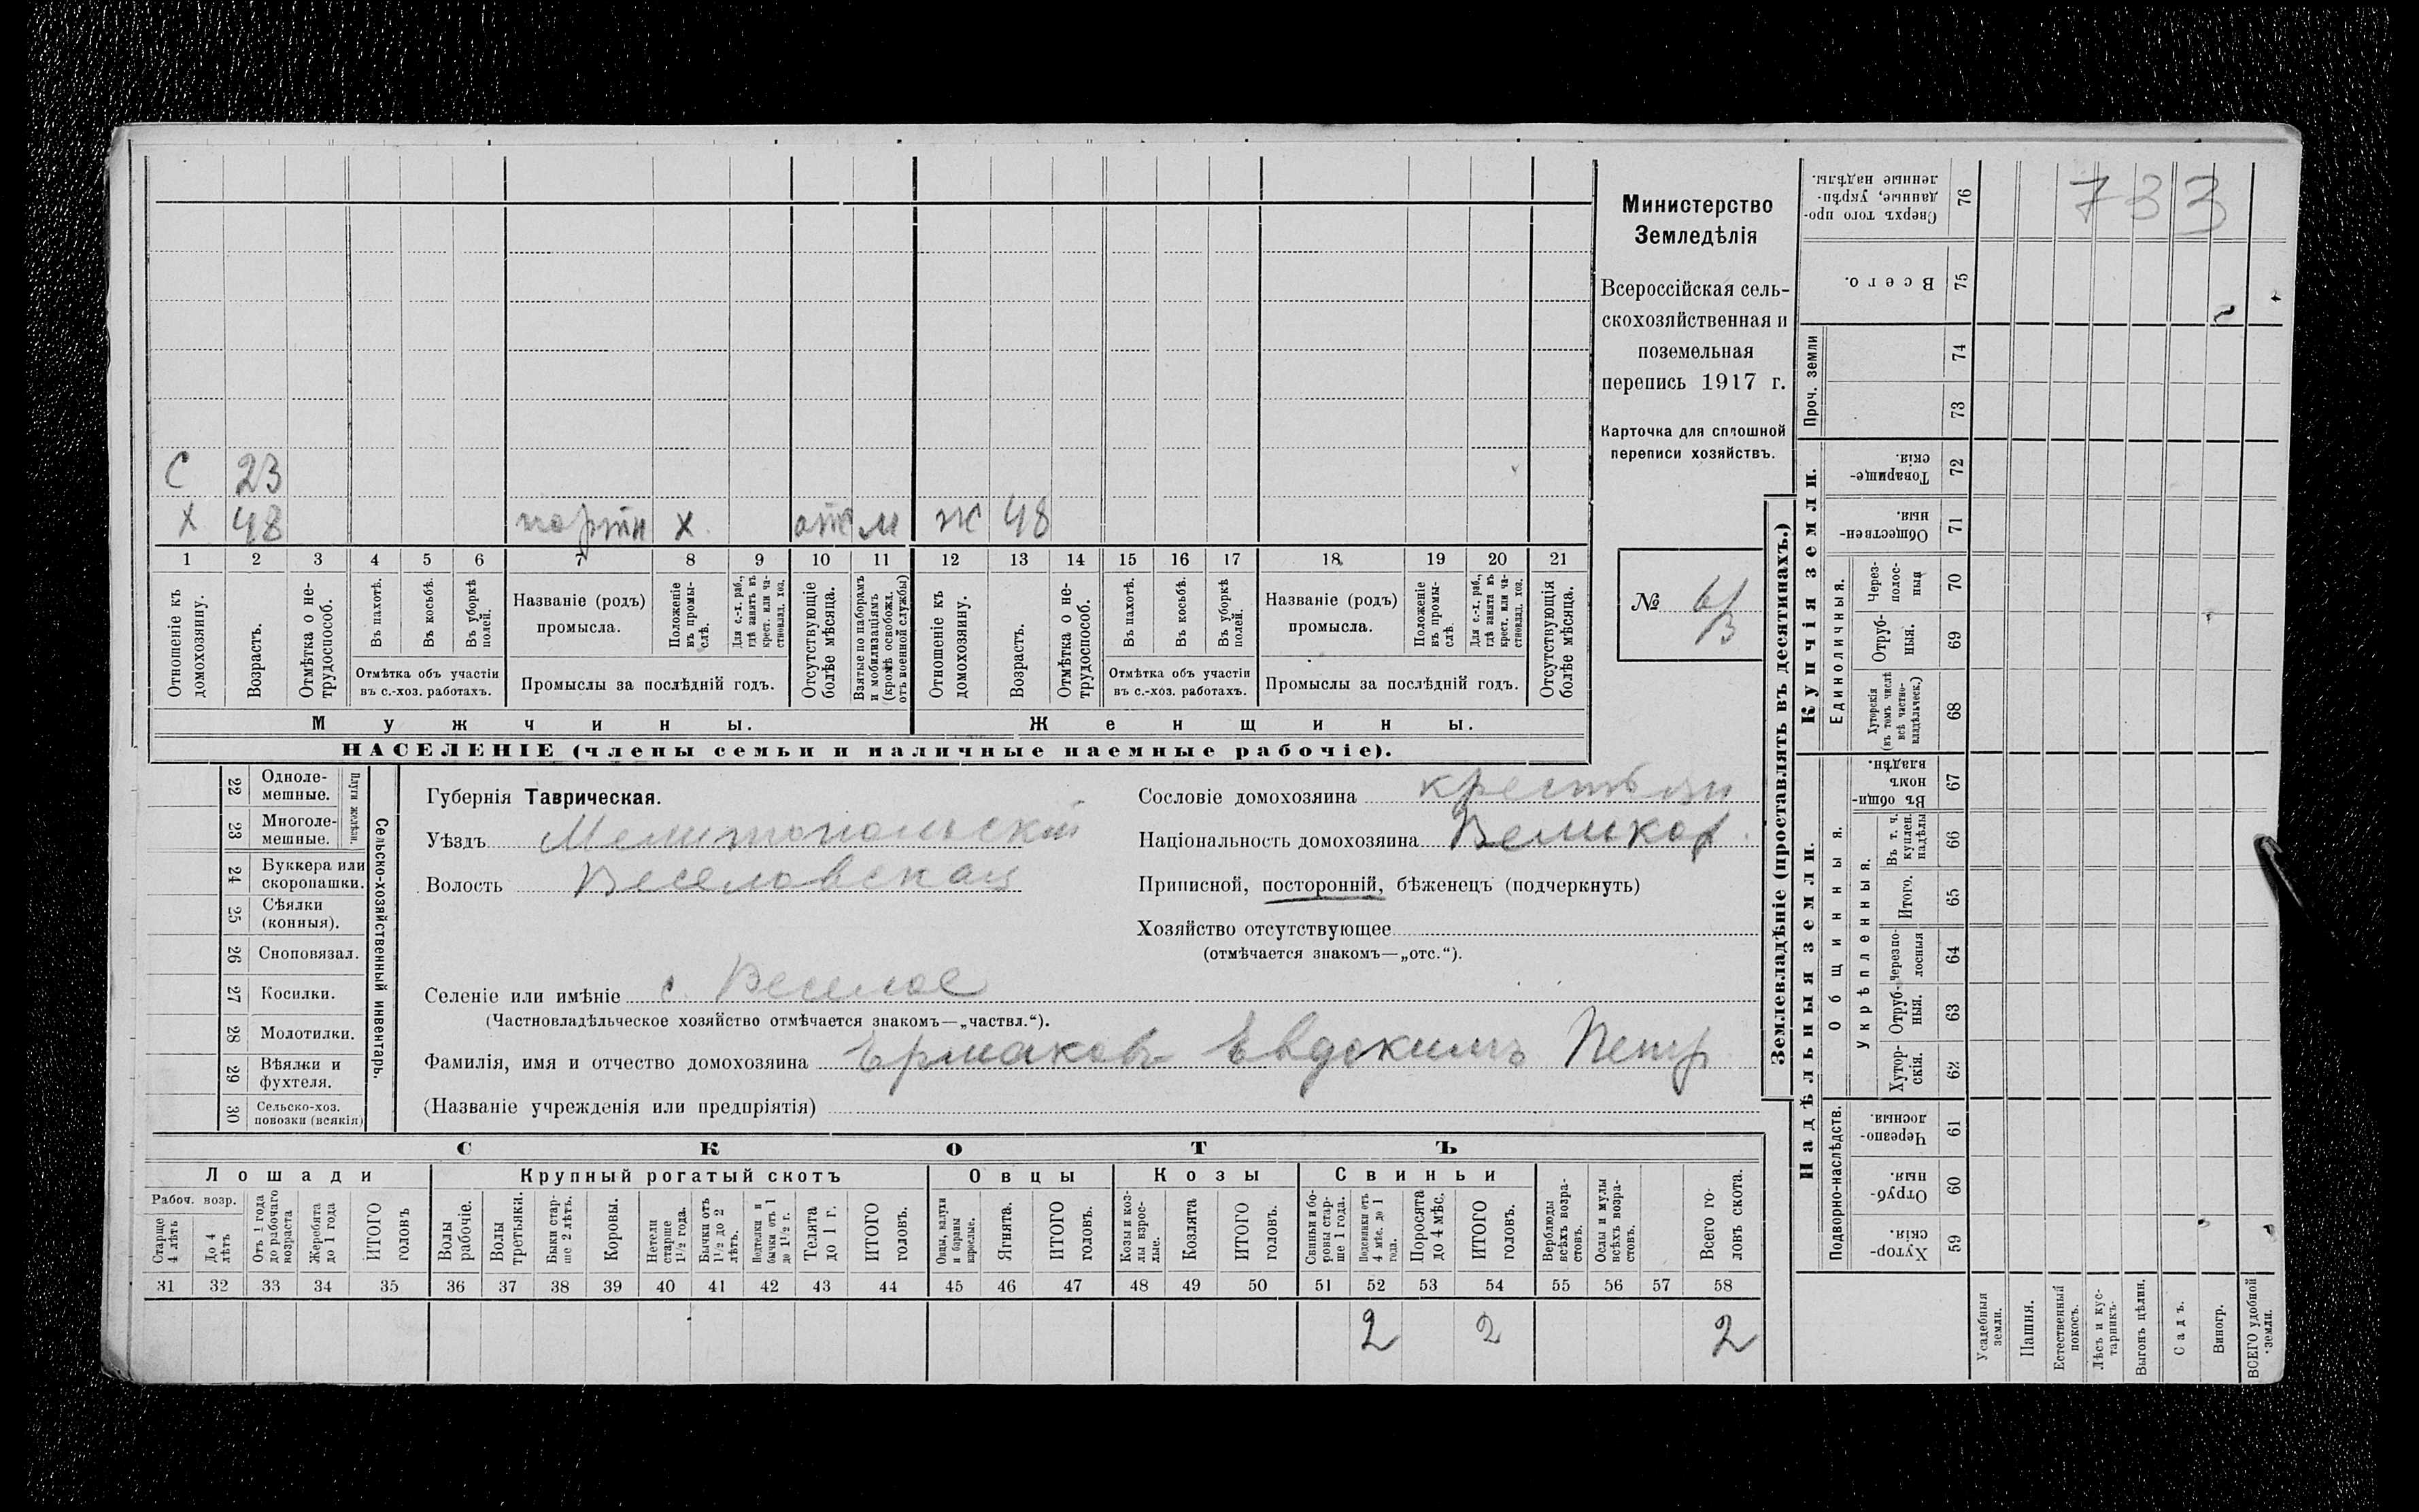 С 23
Х 48 портн Х отс м ж 48
1 2 3 4 5 6 7 8 9 10 11 12 13 14 15 16 17 18 19 20 21
Отношеніе къ домохозяину.
Возрастъ.
Отмѣтка о не-
трудоспособ.
Въ пахотѣ.
Въ косьбѣ.
Въ уборкѣ
полей.
Отмѣтка объ участіи
въ с.-хоз. работахъ.
Названіе (родъ)
промысла.
Положеніе
въ промы-
слѣ.
Для с.-х. раб.,
гдѣ занятъ въ
крест. или ча-
стновлад. хоз.
Промыслы за послѣдній годъ.
Отсутствующіе
болѣе мѣсяца.
Взятые по наборамъ
и мобилизаціямъ
(кромѣ освобожд.
отъ военной службы)
Отношеніе къ
домохозяину.
Возрастъ.
Отмѣтка о не-
трудоспособ.
Въ пахотѣ.
Въ косьбѣ.
Въ уборкѣ
полей.
Отмѣтка объ участіи
въ с.-хоз. работахъ.
Названіе (родъ)
промысла.
Положеніе
въ промы-
слѣ.
Для с.-х. раб.,
гдѣ занята въ
крест. или ча-
стновлад. хоз.
Промыслы за послѣдній годъ.
Отсутствующія
болѣе мѣсяца.
Мужчины. Женщины.
НАСЕЛЕНІЕ (члены семьи и наличные наемные рабочіе).
Министерство
Земледѣлія
Всероссійская сель-
скохозяйственная и
поземельная
перепись 1917 г.
Карточка для сплошной
переписи хозяйствъ.
№ 6/3
22 Одноле-
мешные.
23 Многоле-
мешные.
Плуги желѣзн.
24 Буккера или
скоропашки.
25 Сѣялки
(конныя).
26 Сноповязал.
27 Косилки.
28 Молотилки.
29 Вѣялки и
фухтеля.
30 Сельско-хоз.
повозки (всякія)
Сельско-хозяйственный инвентарь.
Губернія Таврическая.
Уѣздъ Мелитопольскій
Волость Веселовская
Селеніе или имѣніе с. Веселое
(Частновладѣльческое хозяйство отмѣчается знакомъ—„частвл.“).
Фамилія, имя и отчество домохозяина Ермаковъ Евдокимъ Петр
(Названіе учрежденія или предпріятія)
Сословіе домохозяина крестьян
Національность домохозяина Великор.
Приписной, посторонній, бѣженецъ (подчеркнуть)
Хозяйство отсутствующее
(отмѣчается знакомъ—„отс.“).
СКОТЪ
Лошади Крупный рогатый скотъ Овцы Козы Свиньи
Рабоч. возр.
Старше
4 лѣтъ
До 4
лѣтъ
Отъ 1 года
до рабочаго
возраста
Жеребята
до 1 года
ИТОГО
головъ
Волы
рабочіе.
Волы
третьяки.
Быки стар-
ше 2 лѣтъ.
Коровы.
Нетели
старше
1 1/2 года.
Бычки отъ
1 1/2 до 2
лѣтъ.
Подтелки и
бычки отъ 1
до 1 1/2 г.
Телята
до 1 г.
ИТОГО
головъ.
Овцы, валухи
и бараны
взрослые.
Ягнята.
ИТОГО
головъ.
Козы и коз-
лы взрос-
лые.
Козлята
ИТОГО
головъ.
Свиньи и бо-
ровы стар-
ше 1 года.
Подсвинки отъ
4 мѣс. до 1
года.
Поросята
до 4 мѣс.
ИТОГО
головъ.
Верблюды
всѣхъ возра-
стовъ.
Ослы и мулы
всѣхъ возра-
стовъ.
Всего го-
ловъ скота.
31 32 33 34 35 36 37 38 39 40 41 42 43 44 45 46 47 48 49 50 51 52 53 54 55 56 57 58
2 2 2
Землевладѣніе (проставлять въ десятинахъ.)
733
Сверхъ того про-
данные, укрѣп-
ленные надѣлы. 76
Всего. 75
Проч. земли
74
73
Купчія земли.
Товарище-
скія. 72
Обществен-
ныя. 71
Единоличныя.
Через-
полос-
ныя 70
Отруб-
ныя. 69
Хуторскія
(въ томъ числѣ
всѣ частно-
владѣльческ.) 68
Надѣльныя земли.
Общинныя.
Въ общи-
номъ
владѣн. 67
Укрѣпленныя.
Въ т. ч.
куплен.
надѣлы 66
Итого. 65
Черезпо-
лосныя 64
Отруб-
ныя. 63
Хутор-
скія. 62
Подворно-наслѣдств.
Черезпо-
лосныя. 61
Отруб-
ныя. 60
Хутор-
скія. 59
Усадебныя
земли.
Пашня.
Естественный
покосъ.
Лѣсъ и кус-
тарникъ.
Выгонъ цѣлин.
Садъ.
Виногр.
ВСЕГО удобной
земли.